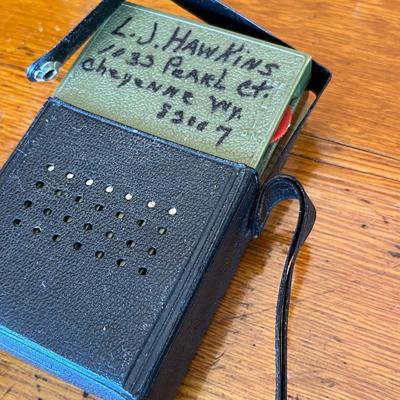 L.J. HAWKINS
1133 PEARL Ct.
Cheyenne Wy.
83007